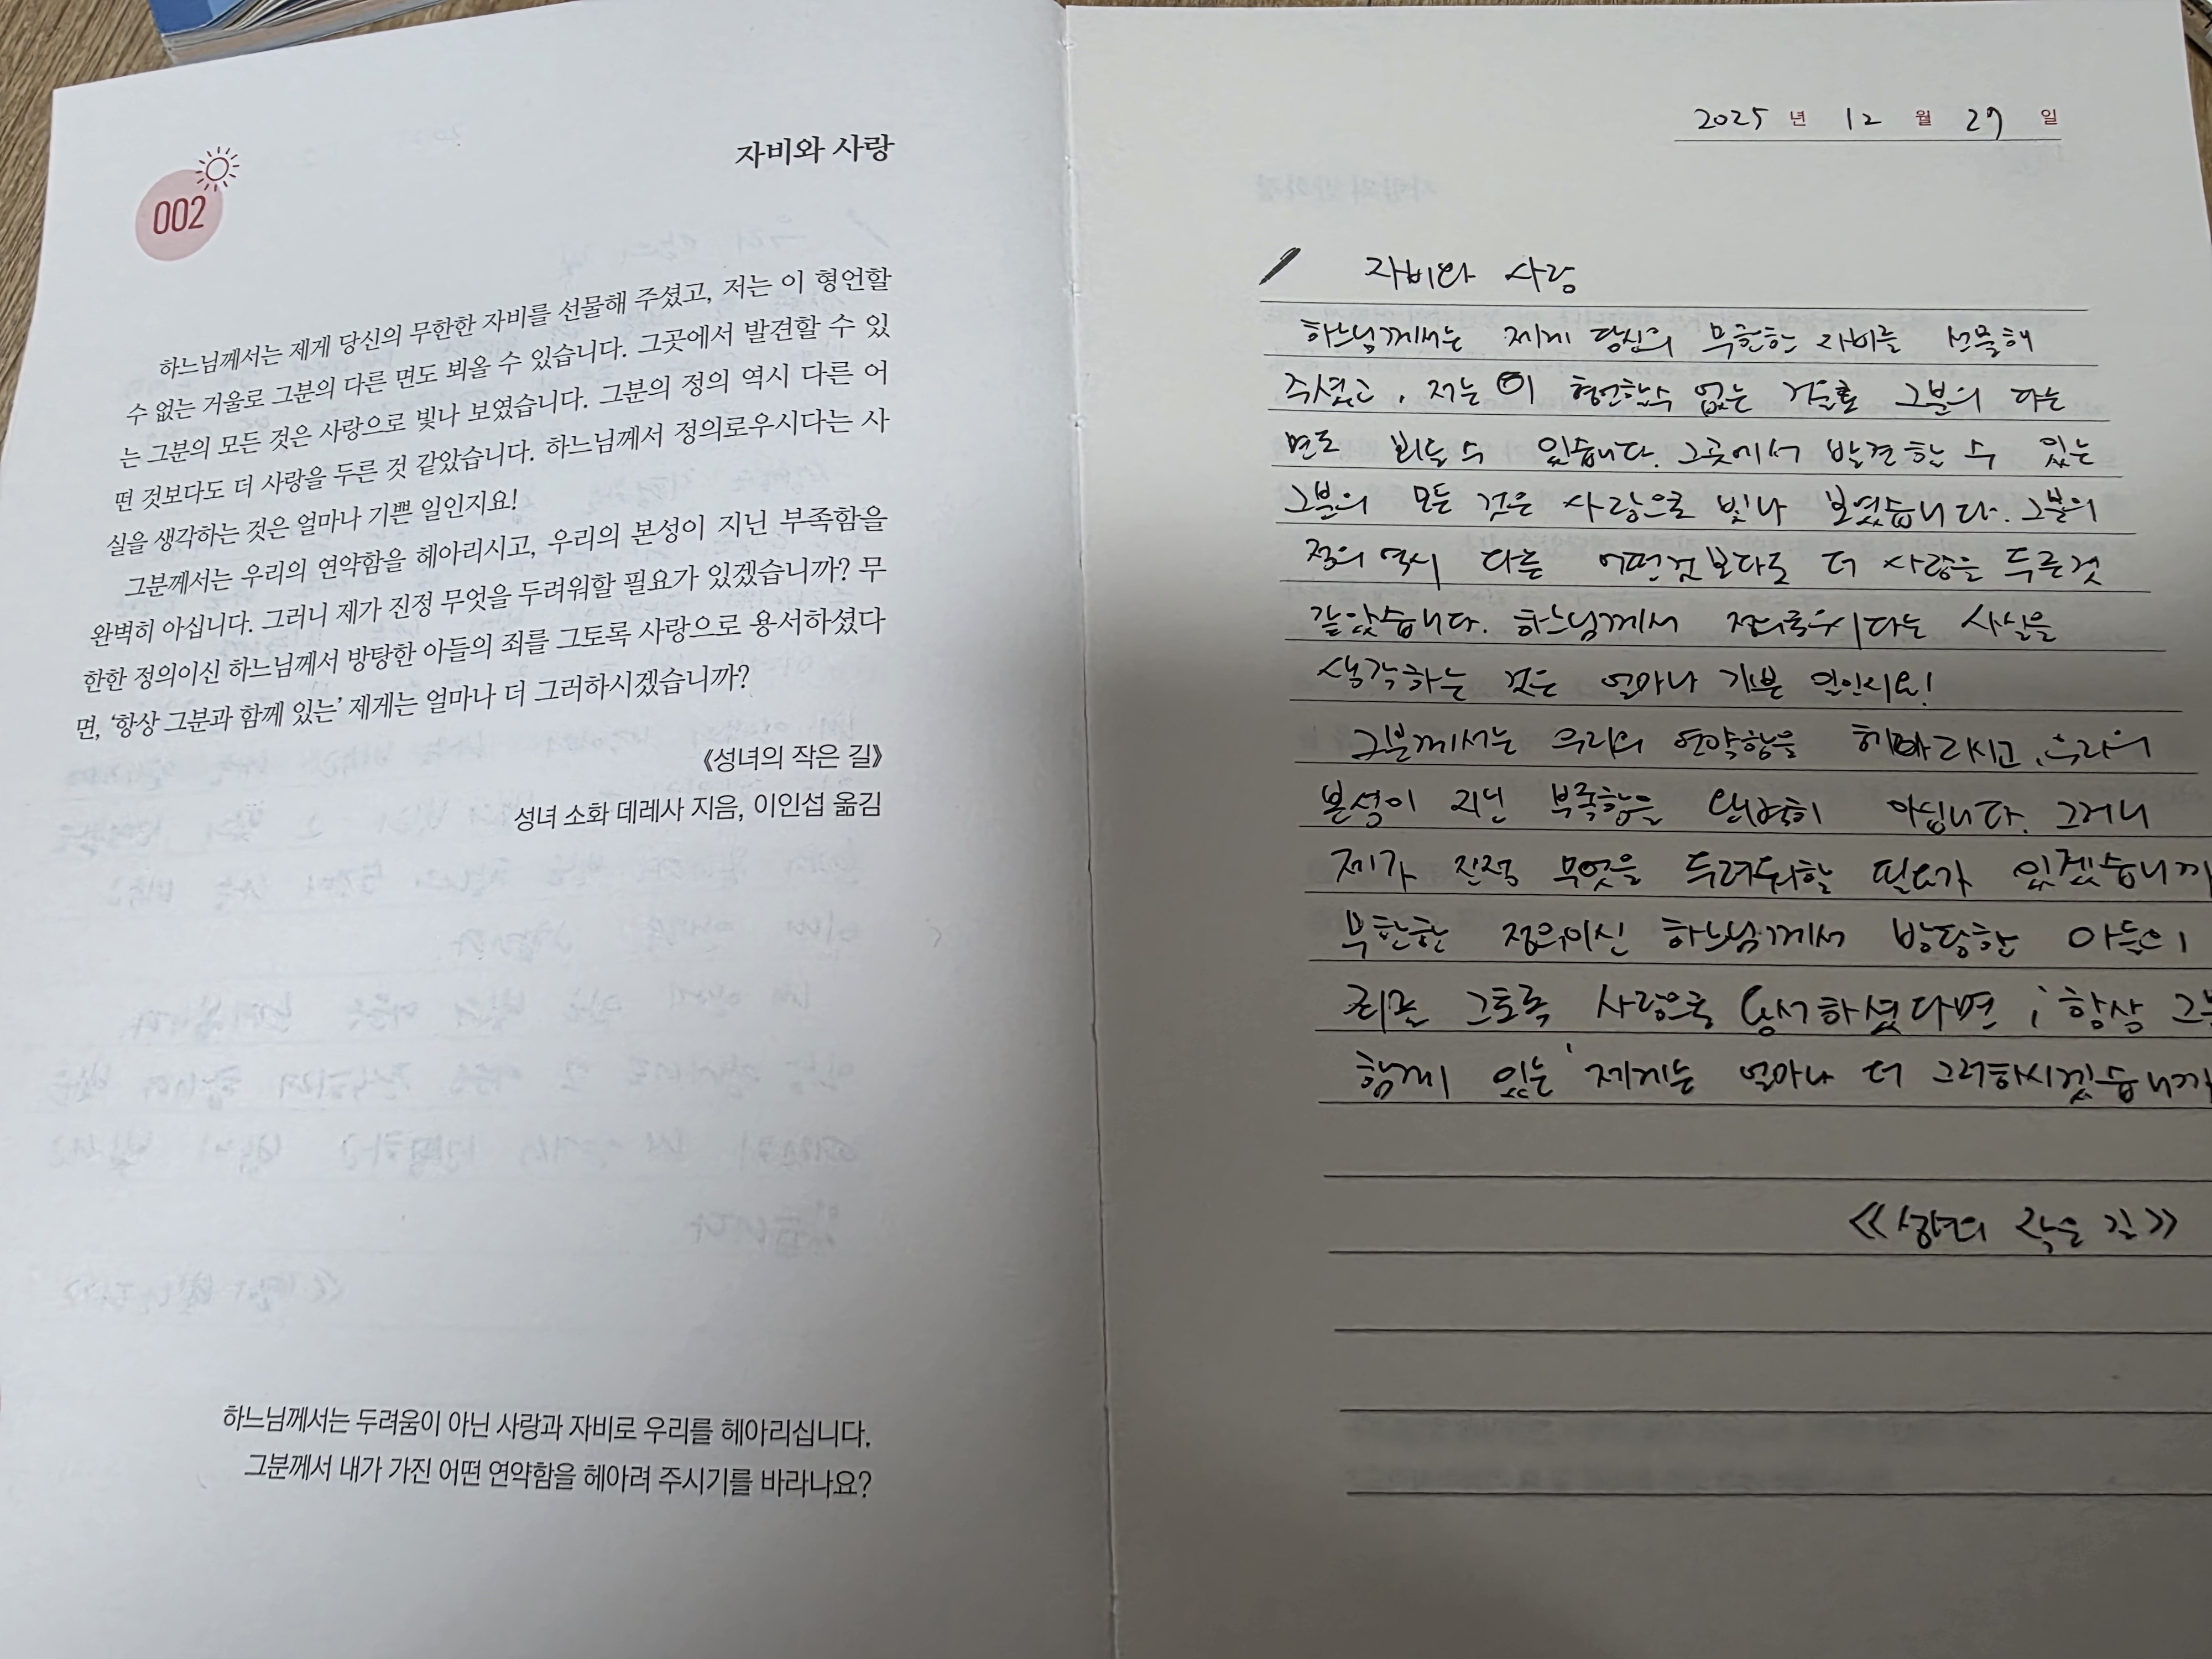 002
자비와 사랑
하느님께서는 제게 당신의 무한한 자비를 선물해 주셨고, 저는 이 형언할
수 없는 거울로 그분의 다른 면도 뵈올 수 있습니다. 그곳에서 발견할 수 있
는 그분의 모든 것은 사랑으로 빛나 보였습니다. 그분의 정의 역시 다른 어
떤 것보다도 더 사랑을 두른 것 같았습니다. 하느님께서 정의로우시다는 사
실을 생각하는 것은 얼마나 기쁜 일인지요!
그분께서는 우리의 연약함을 헤아리시고, 우리의 본성이 지닌 부족함을
완벽히 아십니다. 그러니 제가 진정 무엇을 두려워할 필요가 있겠습니까? 무
한한 정의이신 하느님께서 방탕한 아들의 죄를 그토록 사랑으로 용서하셨다
면, ‘항상 그분과 함께 있는’ 제게는 얼마나 더 그러하시겠습니까?
《성녀의 작은 길》
성녀 소화 데레사 지음, 이인섭 옮김
하느님께서는 두려움이 아닌 사랑과 자비로 우리를 헤아리십니다.
그분께서 내가 가진 어떤 연약함을 헤아려 주시기를 바라나요?
2025 년 12 월 27 일
자비와 사랑
하느님께서는 제게 당신의 무한한 자비를 선물해
주셨고, 저는 이 형언할수 없는 거울로 그분의 다른
면도 뵈올 수 있습니다. 그곳에서 발견할 수 있는
그분의 모든 것은 사랑으로 빛나 보였습니다. 그분의
정의 역시 다른 어떤것보다도 더 사랑을 두른것
같았습니다. 하느님께서 정의로우시다는 사실을
생각하는 것은 얼마나 기쁜 일인지요!
그분께서는 우리의 연약함을 헤아리시고, 우리의
본성이 지닌 부족함을 완벽히 아십니다. 그러니
제가 진정 무엇을 두려워할 필요가 있겠습니까
무한한 정의이신 하느님께서 방탕한 아들의
죄를 그토록 사랑으로 용서하셨다면, '항상
함께 있는' 제게는 얼마나 더 그러하시겠습니까
《성녀의 작은 길》